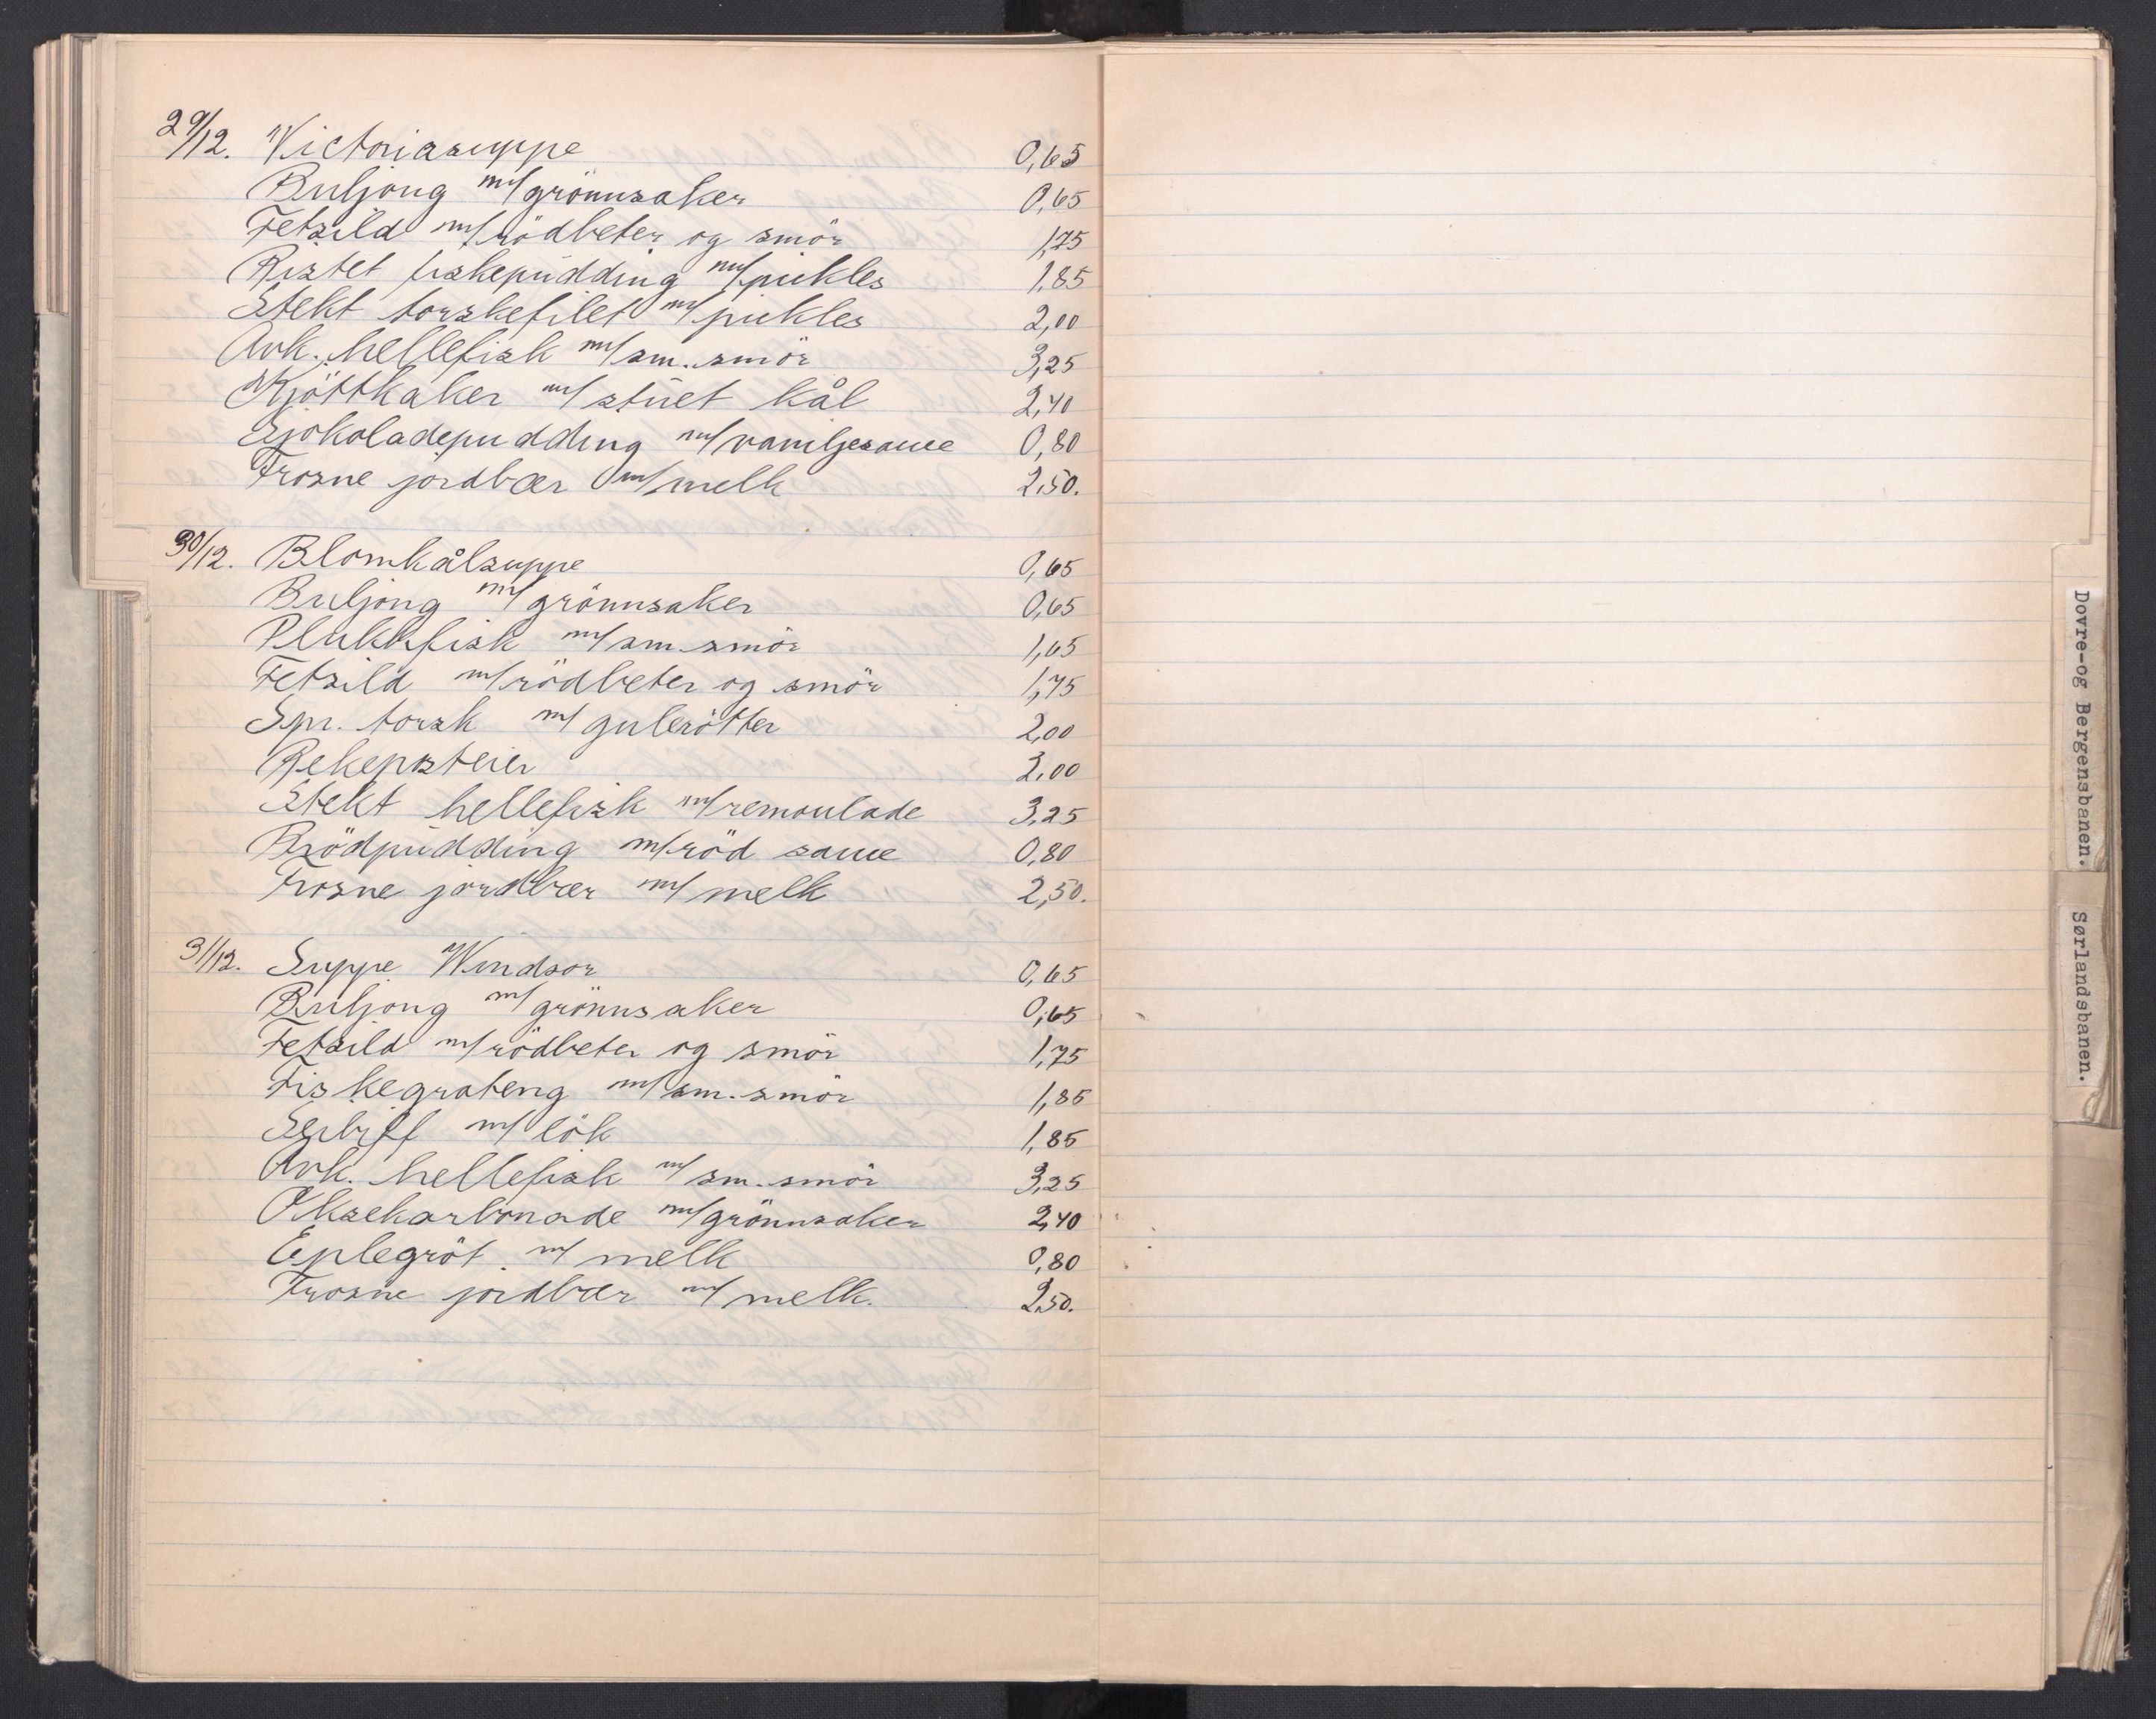 29/12. Victoriasuppe 0,65
Buljong m/grönnsaker 0,65
Fetsild m/rödbeter og smör 1,75
Ristet fiskepudding m/pickles 1,85
Stekt torskefilet m/pickles 2,00
Avk. hellefisk m/sm. smör 3,25
Kjöttkaker m/stuet kål 2,40
Sjokoladepudding m/vaniljesaue 0,80
Frosne jordbær m/melk 2,50.
30/12. Blomkålsuppe 0,65
Buljong m/grönnsaker 0,65
Plukkfisk m/sm. smör 1,65
Fetsild m/rödbeter og smör 1,75
Spr. torsk m/gulerötter 2,00
Rekeposteier 2,00
Stekt hellefisk m/remoulade 3,25
Brödpudding m/röd saue 0,80
Frosne jordbær m/melk 2,50.
31/12. Suppe Windsor 0,65
Buljong m/grönnsaker 0,65
Fetsild m/rödbeter og smör 1,75
Fiskegrateng m/sm. smör 1,85
Seibiff m/lök 1,85
Avk. hellefisk m/sm. smör 3,25
Oksekarbonade m/grönnsaker 2,40
Eplegröt m/melk 0,80
Frosne jordbær m/melk. 2,50.
Dovre-og Bergensbanen.
Sørlandsbanen.